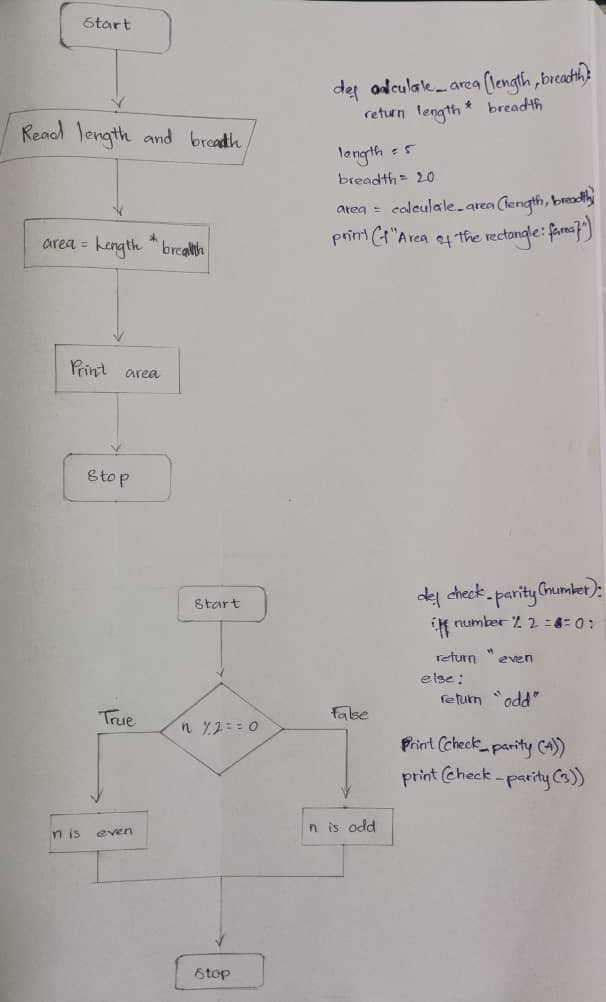 Start
Read length and breadth
area = Length * breadth
Print area
Stop
def calculate_area(length, breadth):
return length * breadth
length = 5
breadth = 20
area = calculate_area(length, breadth)
print(f"Area of the rectangle: {area}")
Start
n % 2 == 0
True
False
n is even
n is odd
Stop
def check_parity(number):
if number % 2 == 0:
return "even
else:
return "odd"
Print(check_parity(4))
print(check_parity(3))